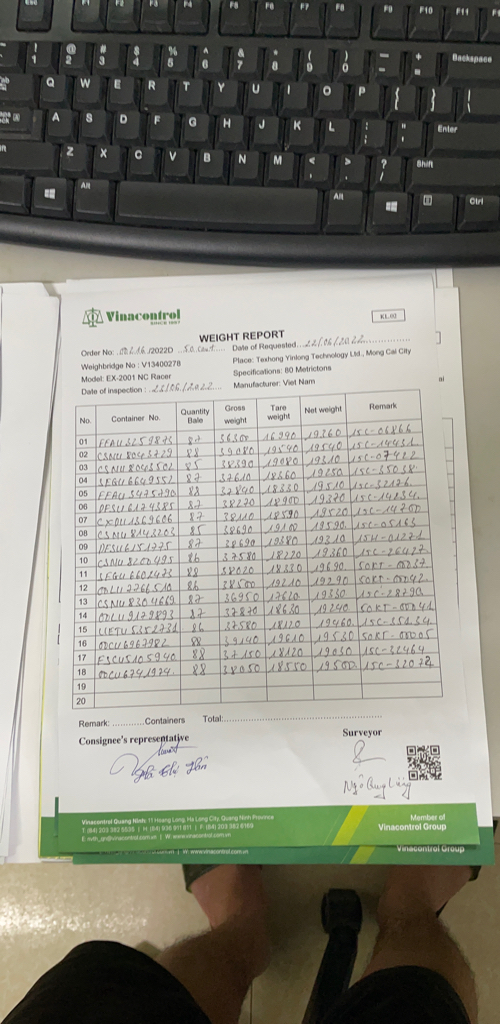 Esc F1 F2 F3 F4 F5 F6 F7 F8 F9 F10 F11
! @ # $ % ^ & * ( ) _ + Backspace
1 2 3 4 5 6 7 8 9 0 - =
Q W E R T Y U I O P { }
A S D F G H J K L : " Enter
Z X C V B N M < > ? Shift
Alt Alt Ctrl
Vinacontrol
SINCE 1957
KL.02
WEIGHT REPORT
Order No: 00216/2022D 50 cont Date of Requested 22/06/2022
Weighbridge No : V13400278 Place: Texhong Yinlong Technology Ltd., Mong Cai City
Model: EX-2001 NC Racer Specifications: 80 Metrictons
Date of inspection: 23/06/2022 Manufacturer: Viet Nam
No. Container No. Quantity Bale Gross weight Tare weight Net weight Remark
01 FFAU3259873 87 36300 16990 19360 15C-06866
02 CSNU8043729 88 39080 19540 19540 15C-14431
03 CSNU8043502 85 38390 19080 19310 15C-07422
04 SEGU6649552 87 37610 18360 19250 15C-35038
05 FFAU3475790 88 37840 18330 19510 15C-32176
06 DFSU6174385 87 38270 18900 19370 15C-14234
07 CXDU1369606 87 38110 18590 19520 15C-14700
08 CSNU8143203 85 38690 19100 19590 15C-05163
09 DFSU6151275 87 38690 19380 19310 15H-01271
10 CSNU8200495 86 37580 18220 19360 15C-26427
11 SEGU6602473 88 38020 18330 19690 50RT-00237
12 OOLU2766510 86 38500 19210 19290 50RT-00242
13 CSNU8304669 87 36950 17620 19330 15C-28790
14 OOLU9129893 87 37870 18630 19240 50RT-00241
15 UETU5352731 86 37580 18120 19460 15C-35434
16 OOCU6967982 88 39140 19610 19530 50RT-00005
17 FSCU5105940 88 37150 18120 19030 15C-32464
18 OOCU6741974 88 38050 18550 19500 15C-32072
19
20
Remark: ............Containers Total:
Consignee's representative Surveyor
Vinacontrol Quang Ninh: 11 Hoang Long, Ha Long City, Quang Ninh Province
Member of
Vinacontrol Group
W: www.vinacontrol.com.vn
Vinacontrol Group